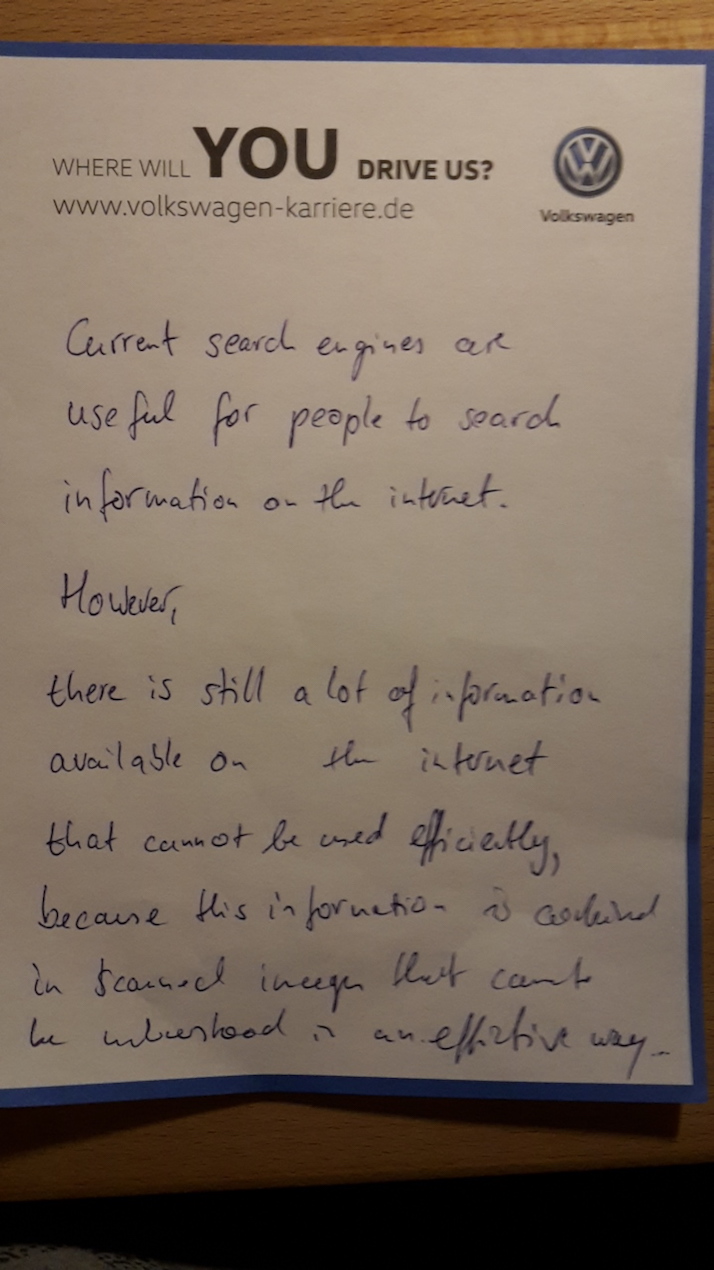 WHERE WILL YOU DRIVE US?
www.volkswagen-karriere.de
Volkswagen
Current search engines are
useful for people to search
information on the internet.
However,
there is still a lot of information
available on the internet
that cannot be used efficiently,
because this information is
in scanned images that cannot
be understood in an effective way.